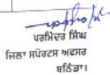 ਪਰਮਿੰਦਰ ਸਿੰਘ
ਜਿਲਾ ਸਪੋਰਟਸ ਅਫਸਰ
ਬਠਿੰਡਾ।